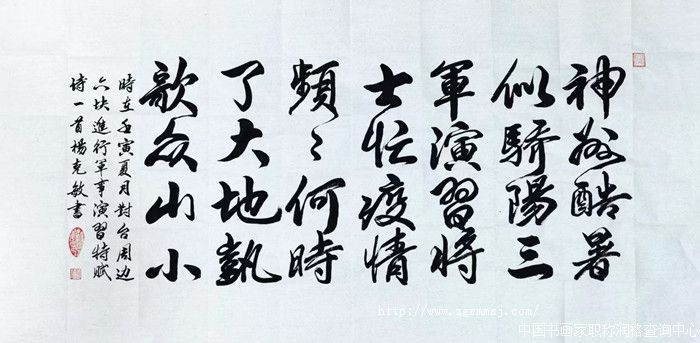 神州酷暑
似驕陽三
軍演習將
士忙疫情
頻〻何時
了大地凱
歌众山小
時在壬寅夏月對台周边
六块進行軍事演習特赋
诗一首楊克敏書
中国书画家职称润格查询中心